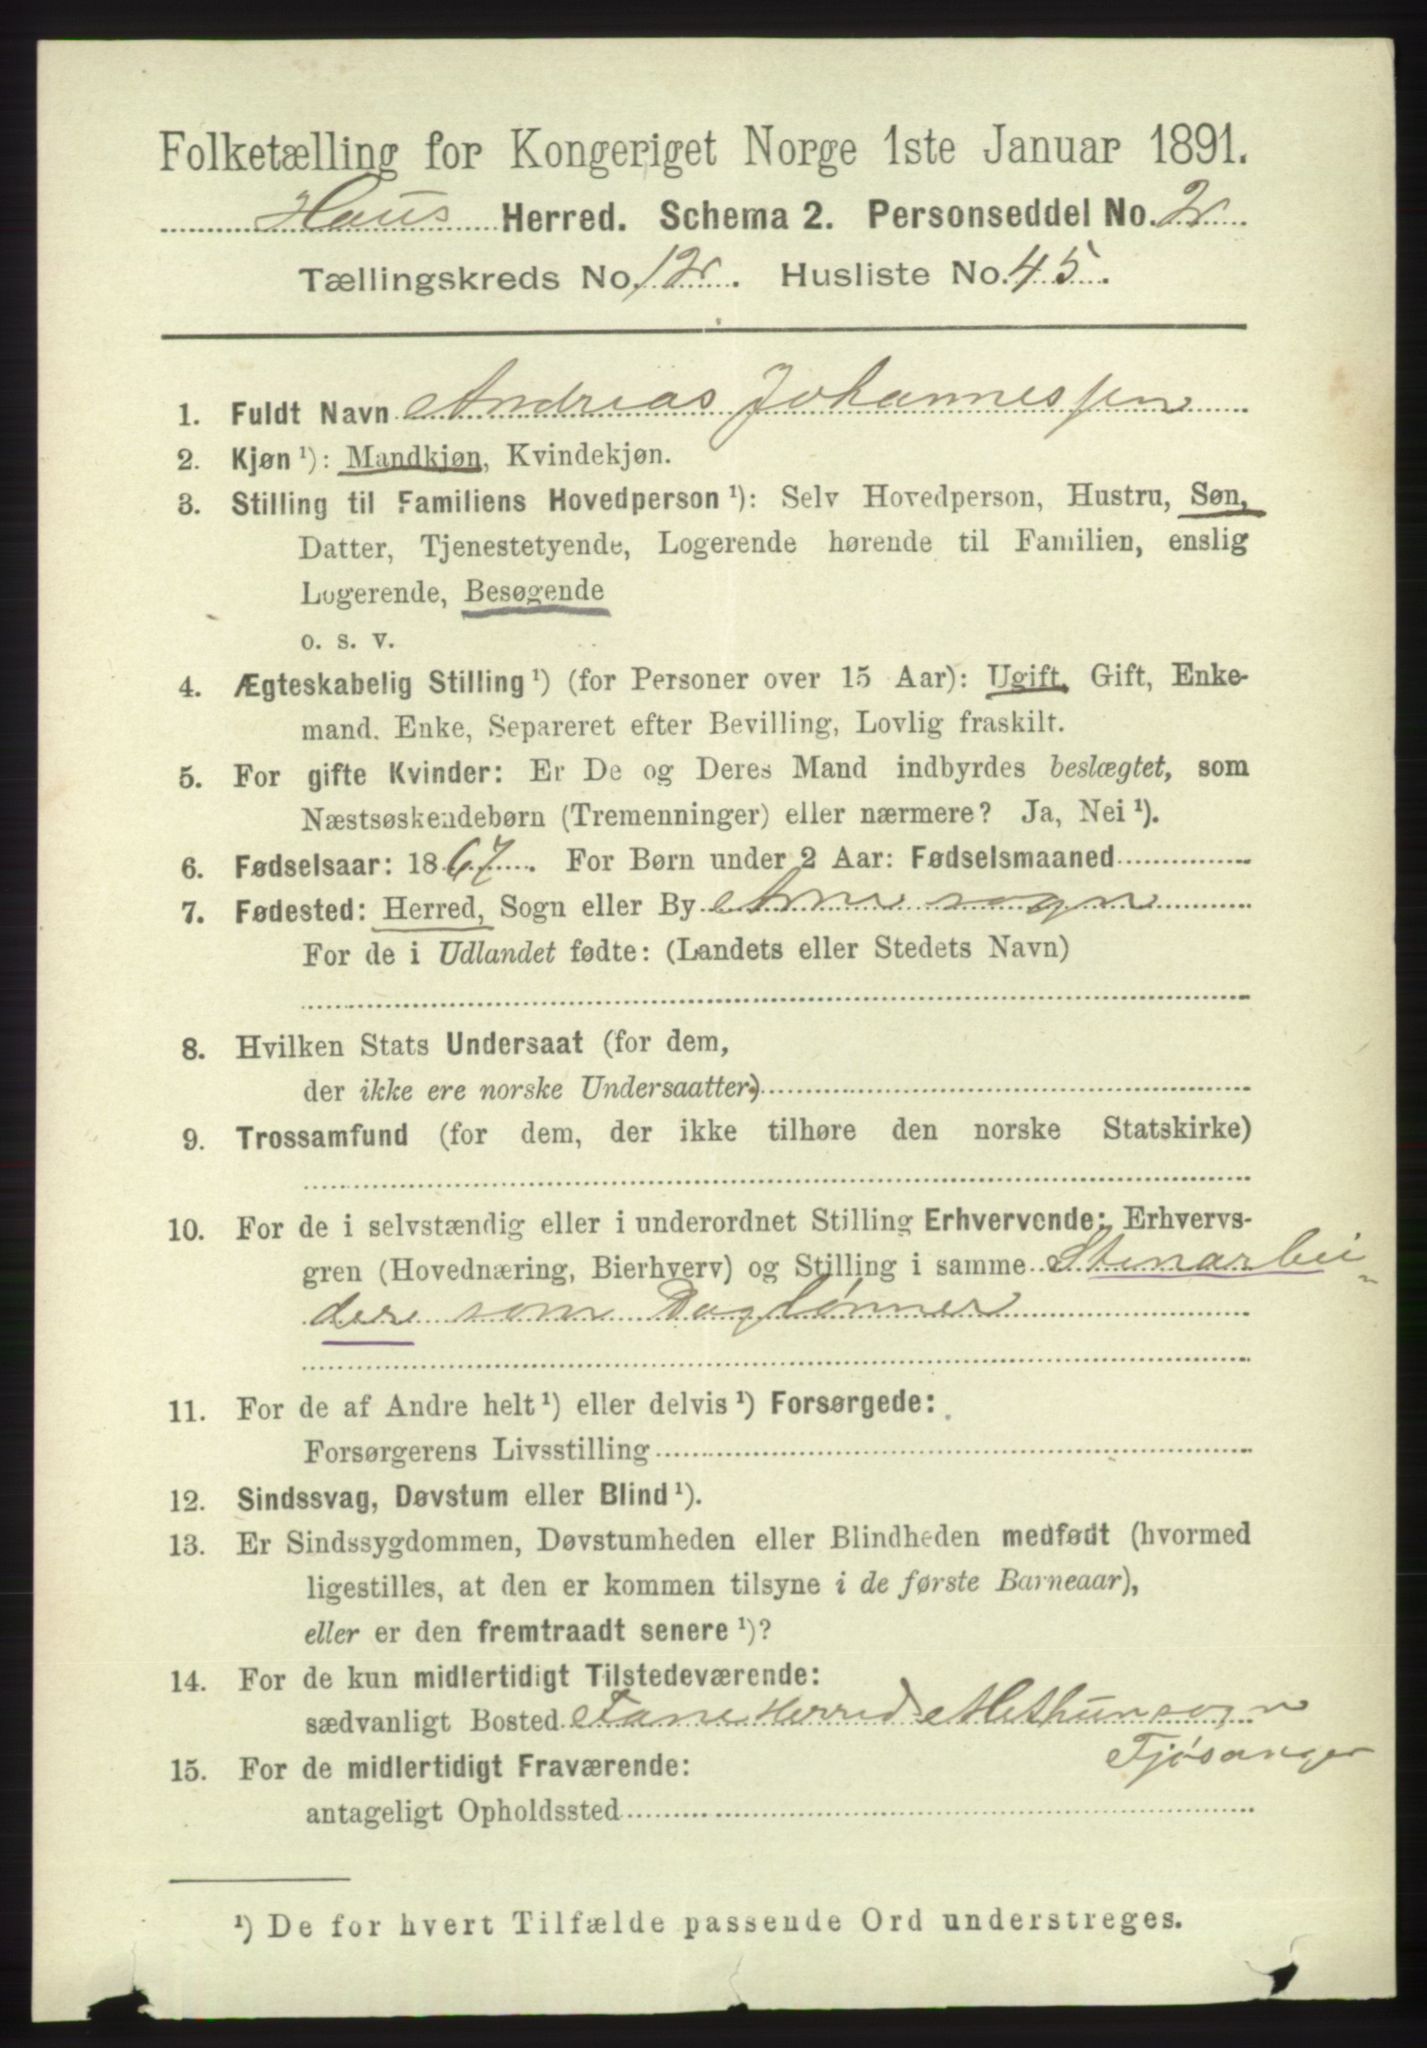 Folketælling for Kongeriget Norge 1ste Januar 1891.
Haus Herred. Schema 2. Personseddel No. 2
Tællingskreds No. 12. Husliste No. 45.
1. Fuldt Navn Andrias Johannessen
2. Kjøn ¹): Mandkjøn, Kvindekjøn.
3. Stilling til Familiens Hovedperson ¹): Selv Hovedperson, Hustru, Søn,
Datter, Tjenestetyende, Logerende hørende til Familien, enslig
Logerende, Besøgende
o. s. v.
4. Ægteskabelig Stilling ¹) (for Personer over 15 Aar): Ugift, Gift, Enke-
mand. Enke, Separeret efter Bevilling, Lovlig fraskilt.
5. For gifte Kvinder: Er De og Deres Mand indbyrdes beslægtet, som
Næstsøskendebørn (Tremenninger) eller nærmere? Ja, Nei ¹).
6. Fødselsaar: 1867. For Børn under 2 Aar: Fødselsmaaned
7. Fødested: Herred, Sogn eller By Arne sogn
For de i Udlandet fødte: (Landets eller Stedets Navn)
8. Hvilken Stats Undersaat (for dem,
der ikke ere norske Undersaatter)
9. Trossamfund (for dem, der ikke tilhøre den norske Statskirke)
10. For de i selvstændig eller i underordnet Stilling Erhvervende: Erhvervs-
gren (Hovednæring, Bierhverv) og Stilling i samme Stenarbei-
der som Daglønner
11. For de af Andre helt ¹) eller delvis ¹) Forsørgede:
Forsørgerens Livsstilling
12. Sindssvag, Døvstum eller Blind ¹).
13. Er Sindssygdommen, Døvstumheden eller Blindheden medfødt (hvormed
ligestilles, at den er kommen tilsyne i de første Barneaar),
eller er den fremtraadt senere ¹)?
14. For de kun midlertidigt Tilstedeværende:
sædvanligt Bosted Fane Herred
Tjøsanger
15. For de midlertidigt Fraværende:
antageligt Opholdssted
¹) De for hvert Tilfælde passende Ord understreges.